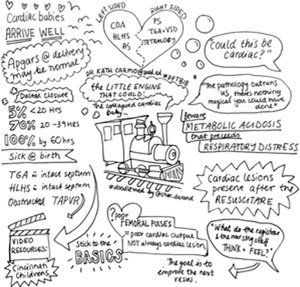 Cardiac babies
ARRIVE WELL
Apgars @ delivery
may be normal
Ductal closure
5% <20 HRS
70% 20-39 HRS
100% by 60 HRS
Sick @ birth
TGA c̄ intact septum
HLHS c̄ intact septum
Obstructed TAPVR
VIDEO
RESOURCES:
Cincinnati
Childrens
LEFT SIDED
COA
HLHS
AS
RIGHT SIDED
PS
TGA + VSD
TETRALOGY
DR KATH CARMO
the LITTLE ENGINE
THAT COULD:
the collapsed cardiac
baby...
Stick to the
BASICS
?poor
FEMORAL PULSES
= poor cardiac output
NOT always cardiac lesion
The goal is to
improve the next
resus.
"Could this be
cardiac?"
"The pathology outruns
US, there's nothing
magical you could have
done"
Beware
METABOLIC ACIDOSIS
that precedes
RESPIRATORY DISTRESS
Cardiac lesions
present after the
RESUSCITAIRE
"What do the registrar
& the nursing staff
THINK + FEEL?"